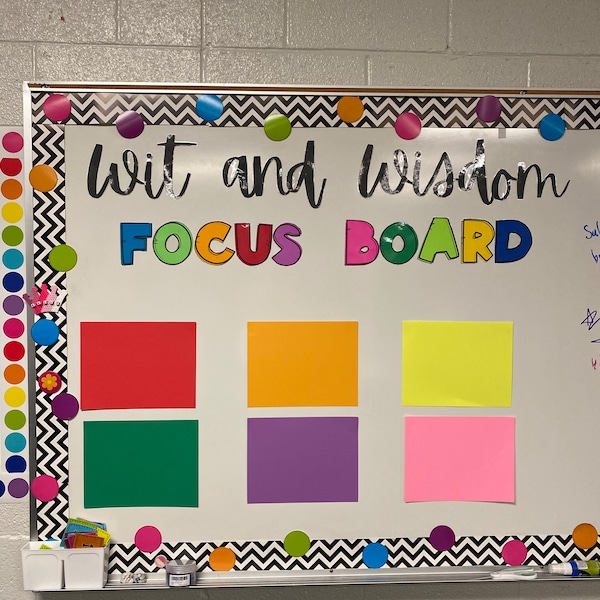 wit and wisdom
FOCUS BOARD